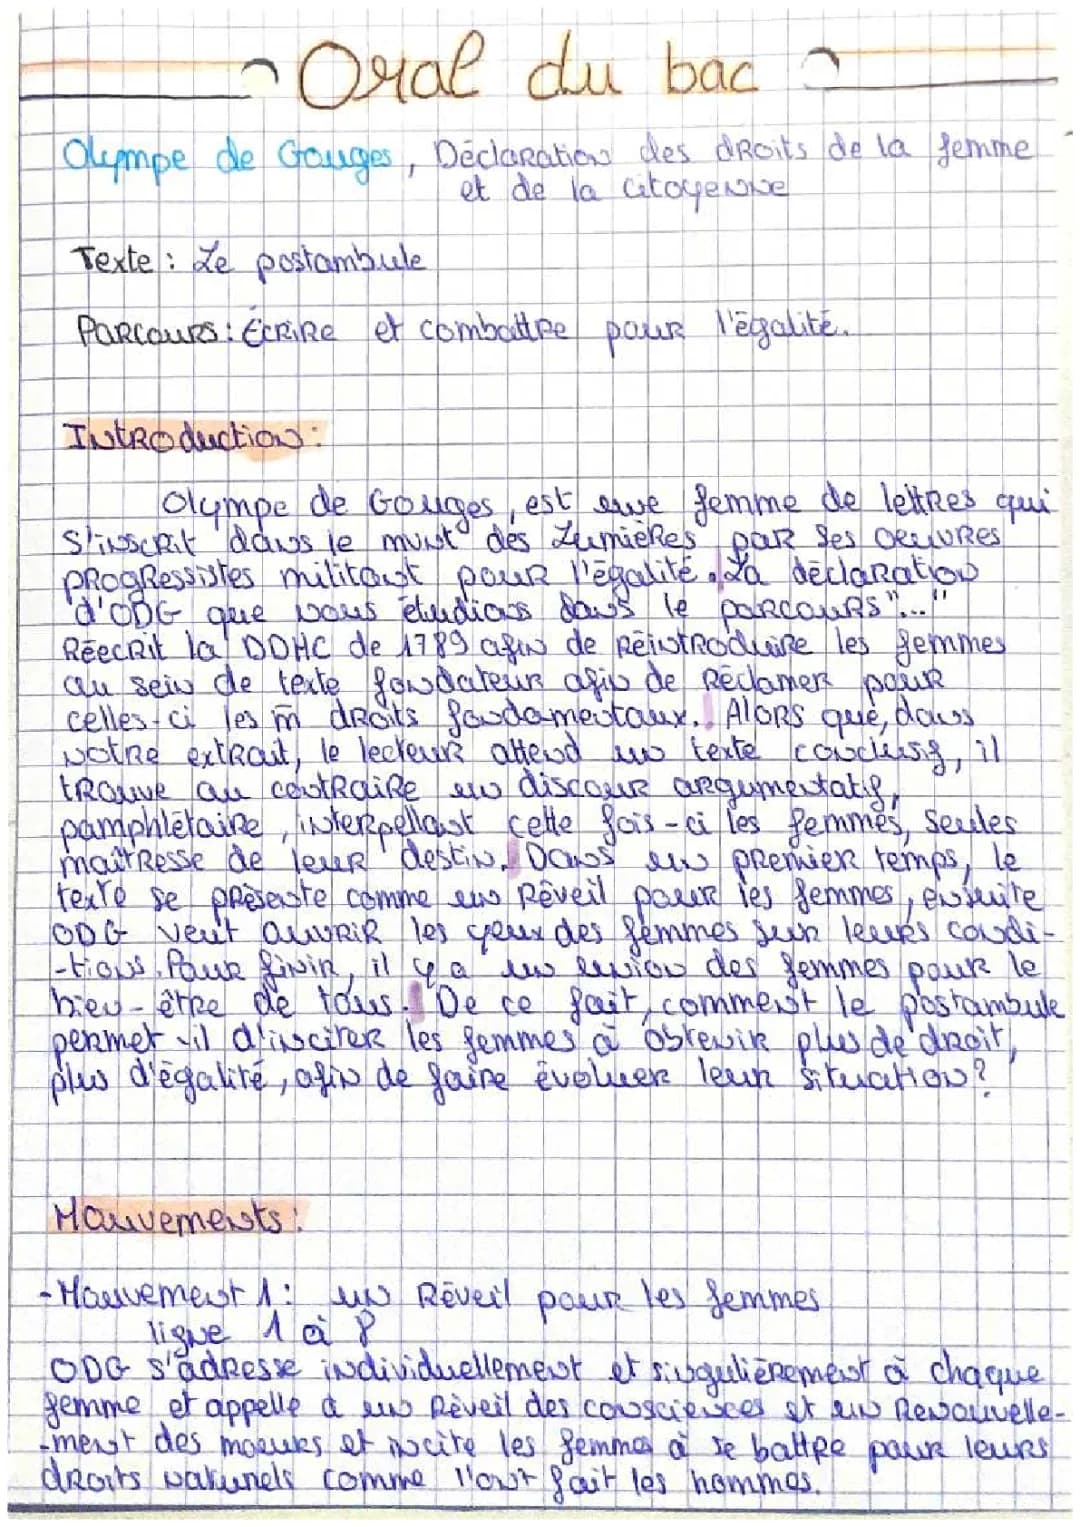 Oral du bac
Olympe de Gouges, Déclaration des droits de la femme
et de la citoyenne
Texte : Le postambule
Parcours : Écrire et combattre pour l'égalité.
Introduction :
Olympe de Gouges, est une femme de lettres qui
s'inscrit dans le mvnt des Lumières par ses oeuvres
progressistes militant pour l'égalité. La déclaration
d'ODG que nous étudions dans le parcours "..."
Réecrit la DDHC de 1789 afin de réintroduire les femmes
au sein de texte fondateur afin de réclamer pour
celles-ci les m̂ droits fondamentaux. Alors que, dans
notre extrait, le lecteur attend un texte conclusif, il
trouve au contraire un discour argumentatif,
pamphlétaire, interpellant cette fois-ci les femmes, seules
maîtresse de leur destin. Dans un premier temps, le
texte se présente comme un Réveil pour les femmes, ensuite
ODG veut ouvrir les yeux des femmes sur leurs condi-
-tions. Pour finir, il y a un union des femmes pour le
bien-être de tous. De ce fait, comment le postambule
permet-il d'inciter les femmes à obtenir plus de droit,
plus d'égalité, afin de faire évoluer leur situation ?
Mouvements :
- Mouvement 1 : un Réveil pour les femmes
ligne 1 à 8
ODG s'adresse individuellement et singulièrement à chaque
femme et appelle à un Réveil des consciences et un Renouvelle-
-ment des moeurs et incite les femmes à se battre pour leurs
droits naturels comme l'ont fait les hommes.